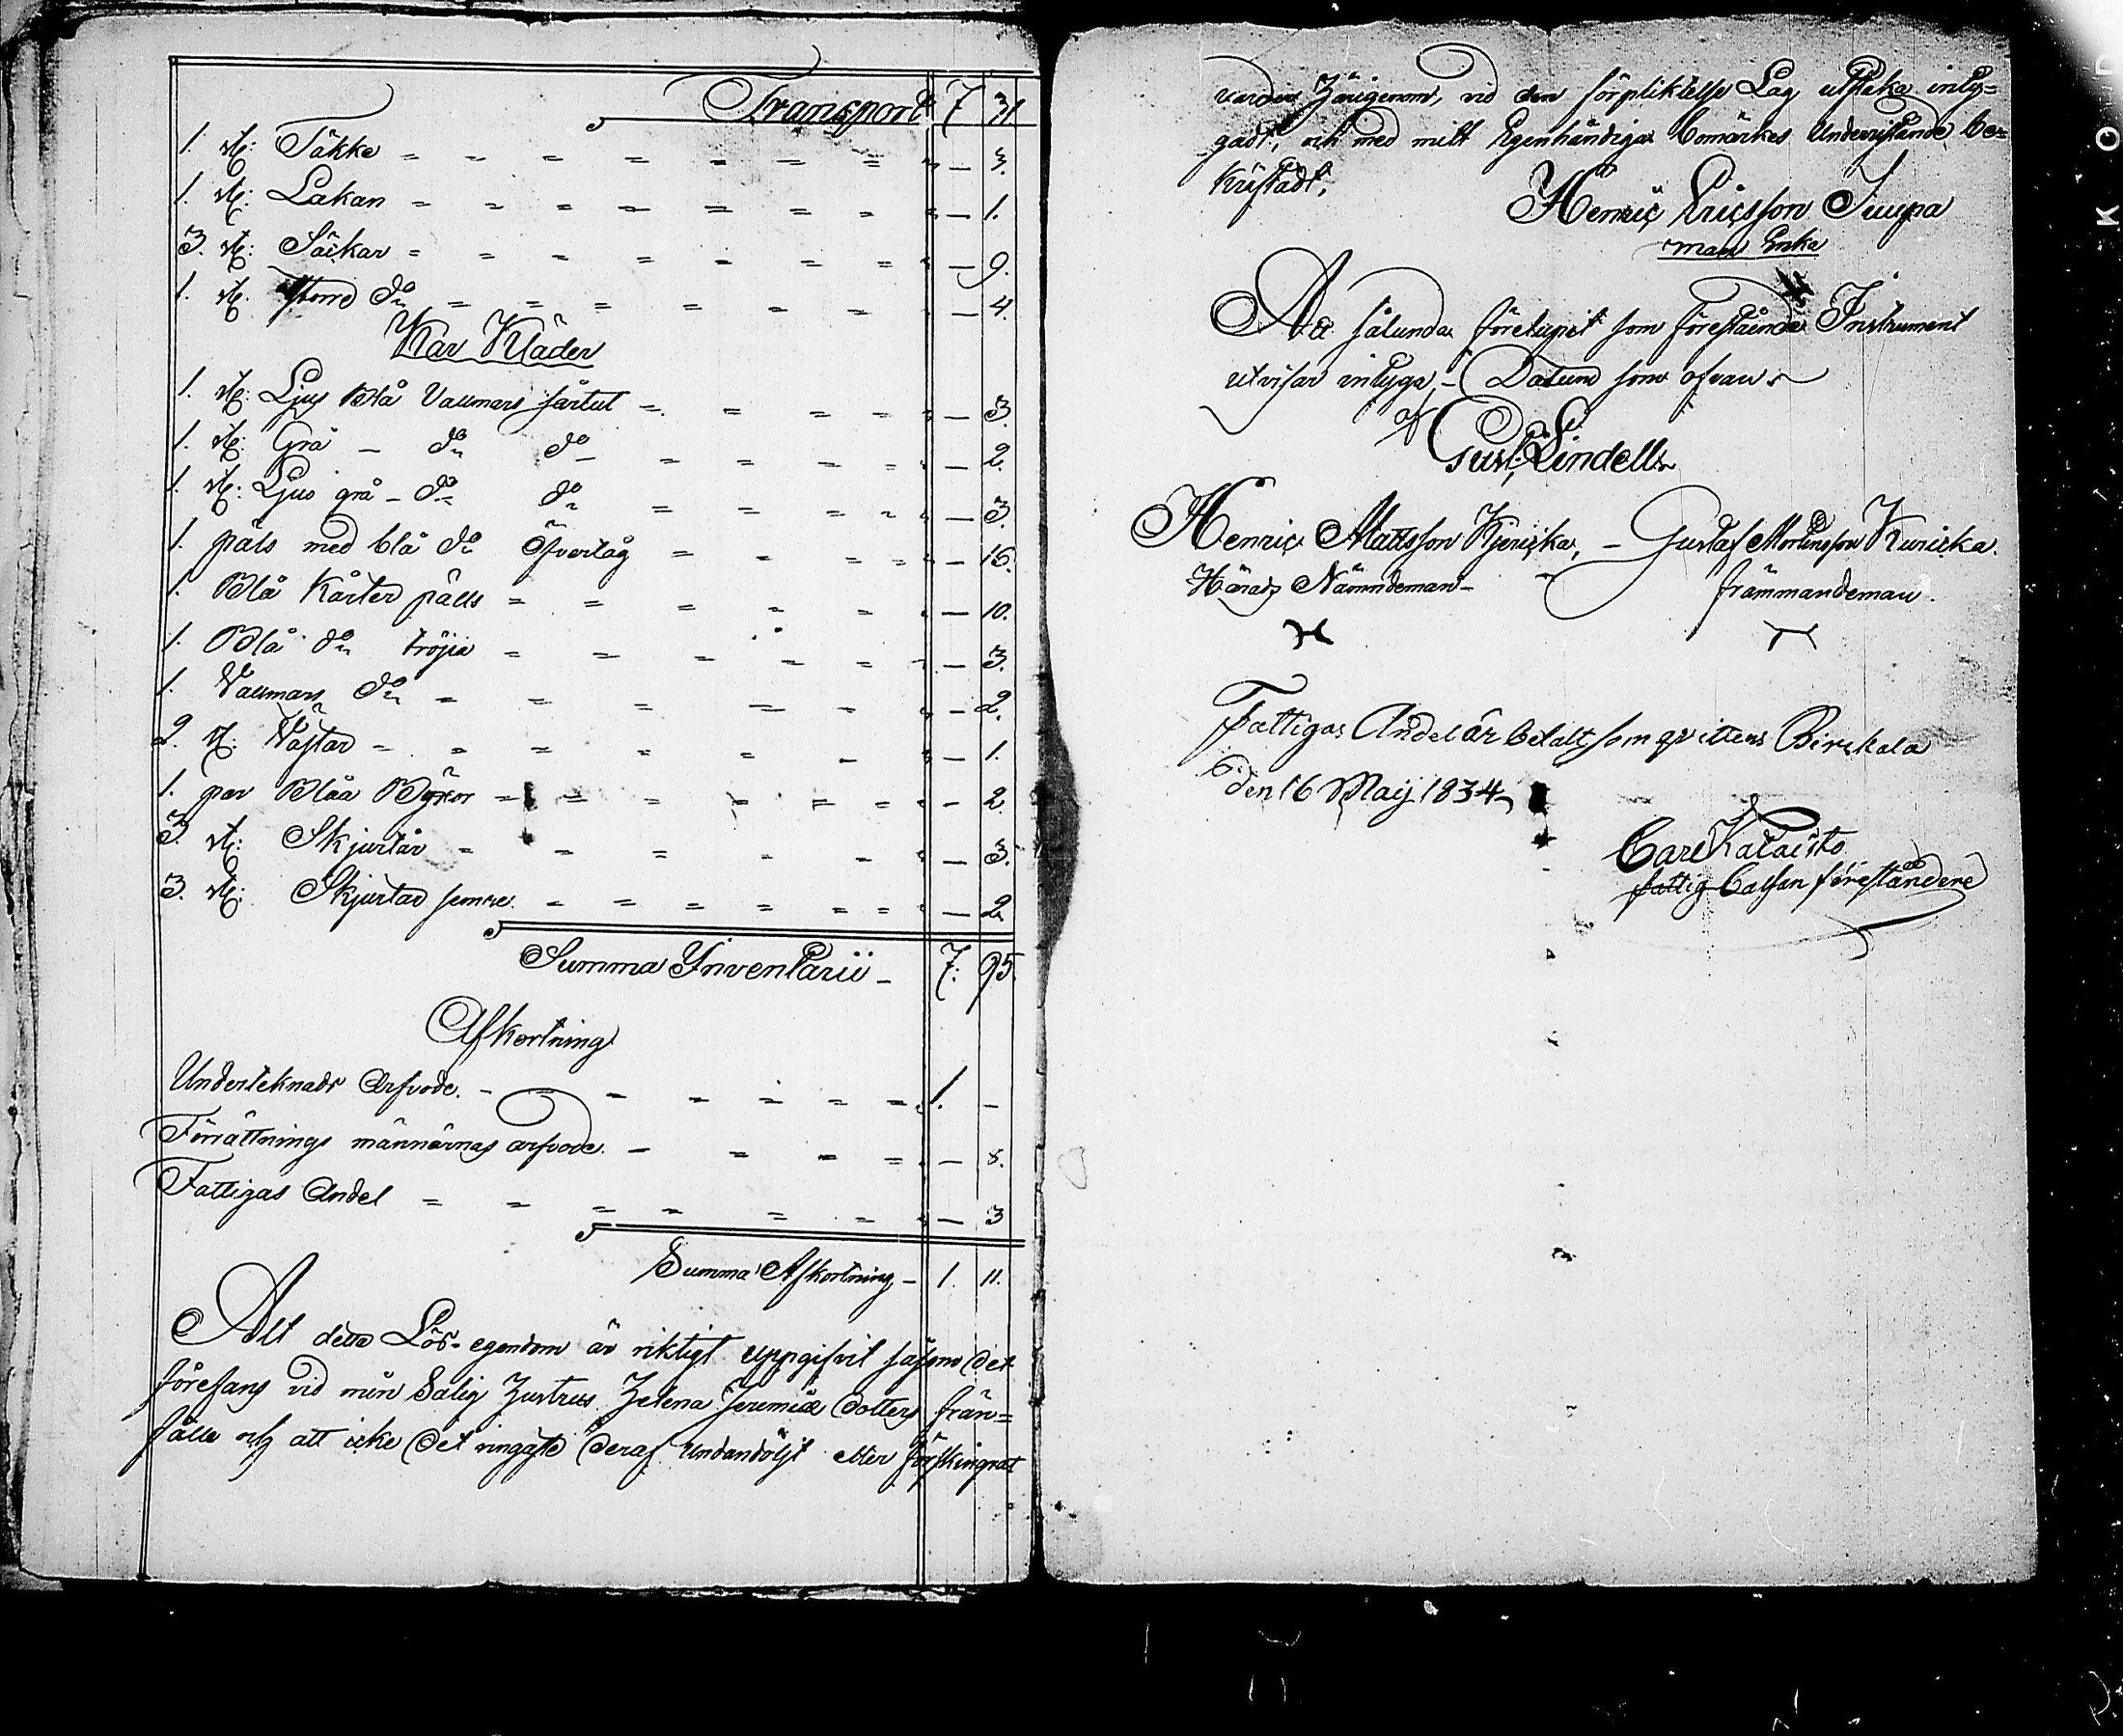 Transport 7 31
1. st: Täkke = = = = = = = — 3.
1. st: Lakan = = = = = = = — 1.
3. st: Säckar = = = = = = = — 9.
1. st. större do = = = = = = — 4.
Kar Kläder
1. st: Ljus Blå Vallmars sårtut = = = = — 3.
1. st: Grå – do do = = = = — 2.
1. st: Ljus grå – do do = = = = — 3.
1. päls med blå do Öfvertåg = = = = — 16.
1. Blå Kårter pälls = = = = = — 10.
1. Blå do tröjia = = = = = — 3.
1. Vallmars do = = = = = — 2.
2. st: Västar = = = = = = — 1.
1. par Blåa Byxor = = = = = = — 2
3. st: Skjurtår = = = = = = — 3.
3. st: Skjurtar semre. = = = = = = — 2
Summa Ynventarii – 7: 95.
Afkortning
Underteknads Arfvode. – = = = = = = 1. –
Förrättnings männernas arfvode. – = = = — 8.
Fattigas Andel = = = = = = — 3
Summa Afkortning – 1. 11.
Alt detta Lös-egendom är riktigt uppgifvit såsom det
förefans vid min Salig Hustrus Helena Jeremiæ dotters från=
fälle och att icke det ringaste deraf undandöljt eller förskingrat
varder Härigenom, vid den förpliktelse Lag utstaka inly=
gadt, och med mitt Egenhändiga bomärkes Underritande be=
kräftadt,
Henric Ericsson Juupa
Enka
At sålunda förelupit som förestående Instrument
utvisar intyga, – Datum som ofvan
af
Gust. Lindell
Henric Mattsson Kjericka, – Gustaf Mortensson Kuricka.
Härads Nämndeman – främmandeman.
Fattigas Andel är betalt som qvitteras Birckala
den 16 Maij 1834
Carl Kalaisto
fattig Cassan föreståndere